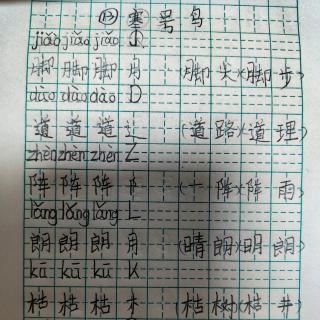 ⑬寒号鸟
jiǎo jiǎo jiǎo J
脚 脚 脚 月 (脚尖)(脚步)
dào dào dào D
道 道 道 辶 (道路)(道理)
zhèn zhèn zhèn Z
阵 阵 阵 阝 (一阵)(阵雨)
lǎng lǎng lǎng L
朗 朗 朗 月 (晴朗)(明朗)
kū kū kū K
枯 枯 枯 木 (枯树)(枯井)